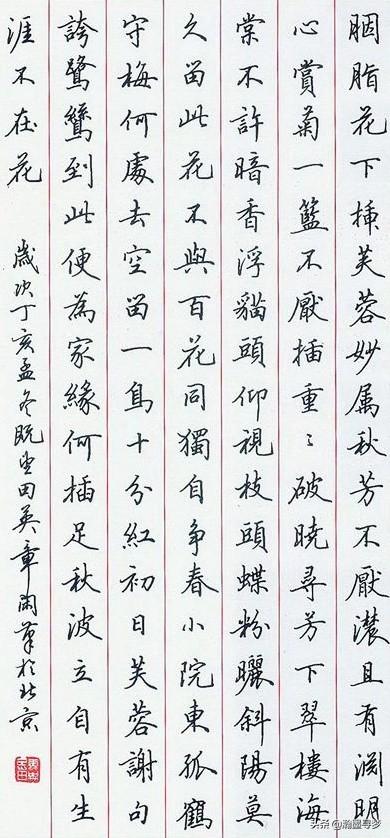 胭脂花下插芙蓉妙属秋芳不厭濃且有渊明
心賞菊一籃不厭插重〻破曉尋芳下翠樓海
棠不許暗香浮貓頭仰視枝頭蝶粉曬斜陽莫
久留此花不與百花同獨自争春小院東孤鶴
守梅何處去空留一鳥十分紅初日芙蓉謝句
誇鷺鷥到此便為家緣何插足秋波立自有生
涯不在花
歲次丁亥孟冬既望田英章筆於北京
头条 @瀚墨寻梦